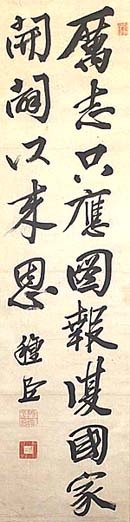 厲志只應圖報復國家
開闢以来恩 種臣